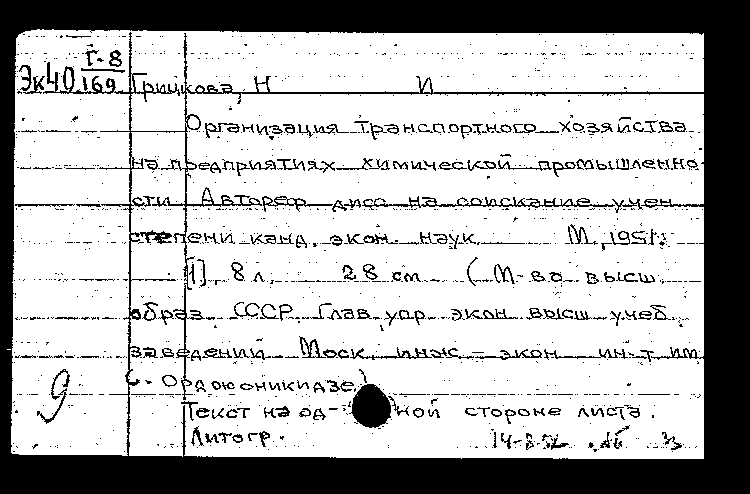 Г-8
Эк40 169 Грицкова, Н И
Организация транспортного хозяйства
на предприятиях химической промышленно-
сти Автореф дисс на соискание учен
степени канд. экон. наук М, 1951.
[1], 8 л. 28 см (М-во высш.
образ. СССР. Глав упр экон высш учеб.
заведений Моск. инж - экон ин-т им
С. Орджоникидзе)
9
Текст на од- ной стороне листа.
Литогр.